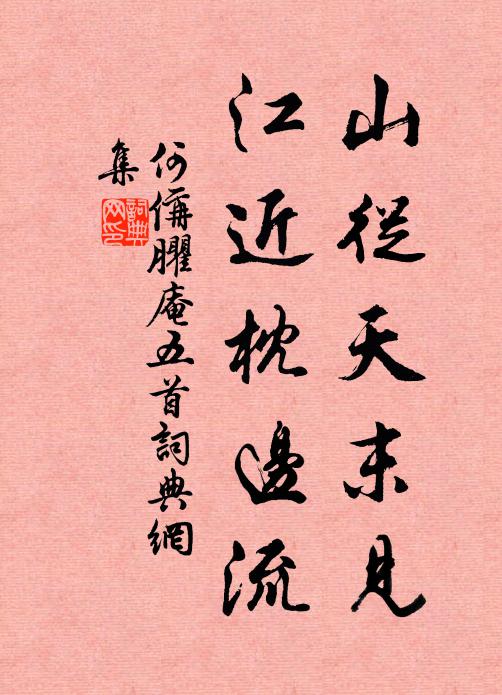 山從天末見
江近枕邊流
何偁臞庵五首詞典網
集
詞典
网印